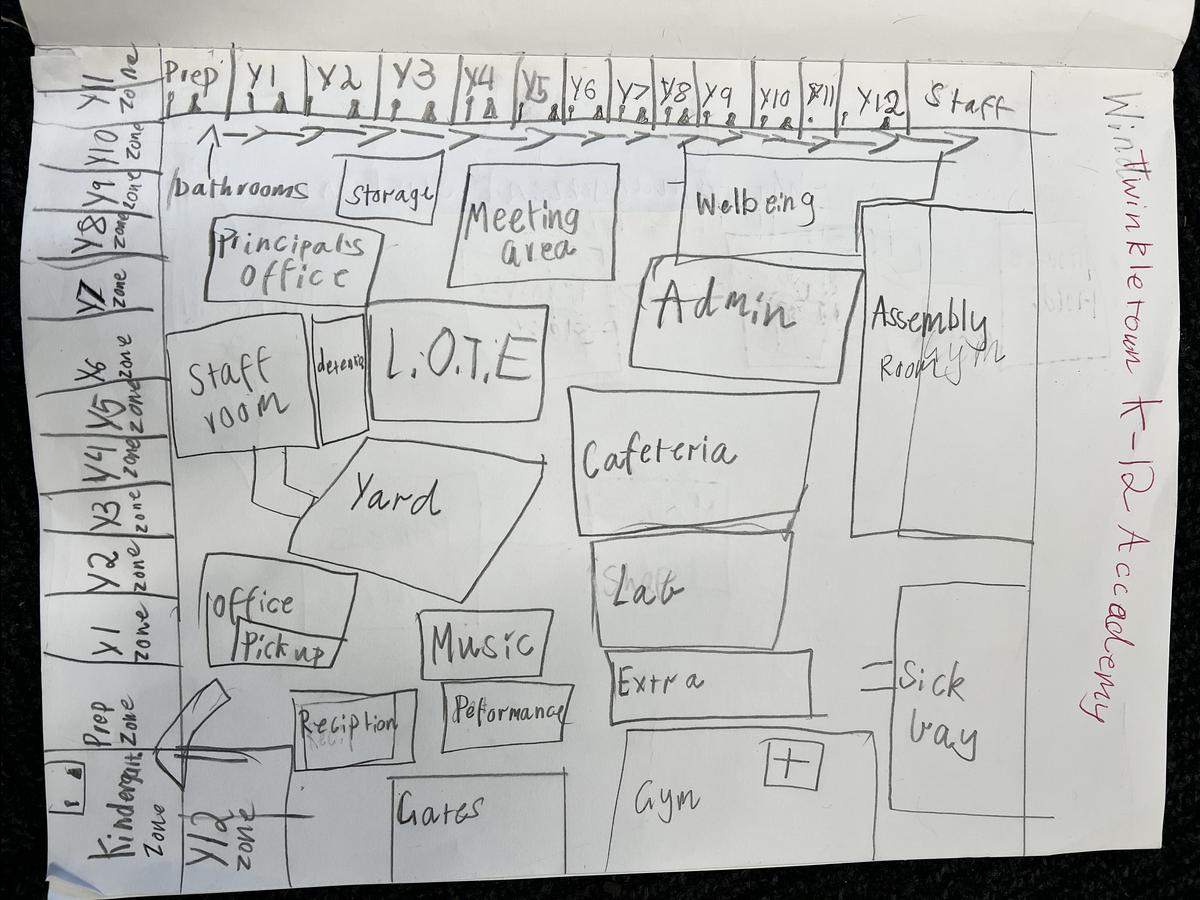 Prep
Y1
Y2
Y3
Y4
Y5
Y6
Y7
Y8
Y9
Y10
Y11
Y12
Staff
bathrooms
Storage
Meeting
area
Welbeing
Principals
Office
Admin
Assembly
Room
gym
Staff
room
L.O.T.E
Cafeteria
Yard
Lab
Office
Pick up
Music
Extra
Sick
bay
Reciption
Peformance
Gates
Gym
Y11
zone
Y10
zone
Y9
zone
Y8
zone
Y7
zone
Y6
zone
Y5
zone
Y4
zone
Y3
zone
Y2
zone
Y1
zone
Prep
Zone
Kindergart.
Zone
Y12
zone
twinkletown K-12 Accademy